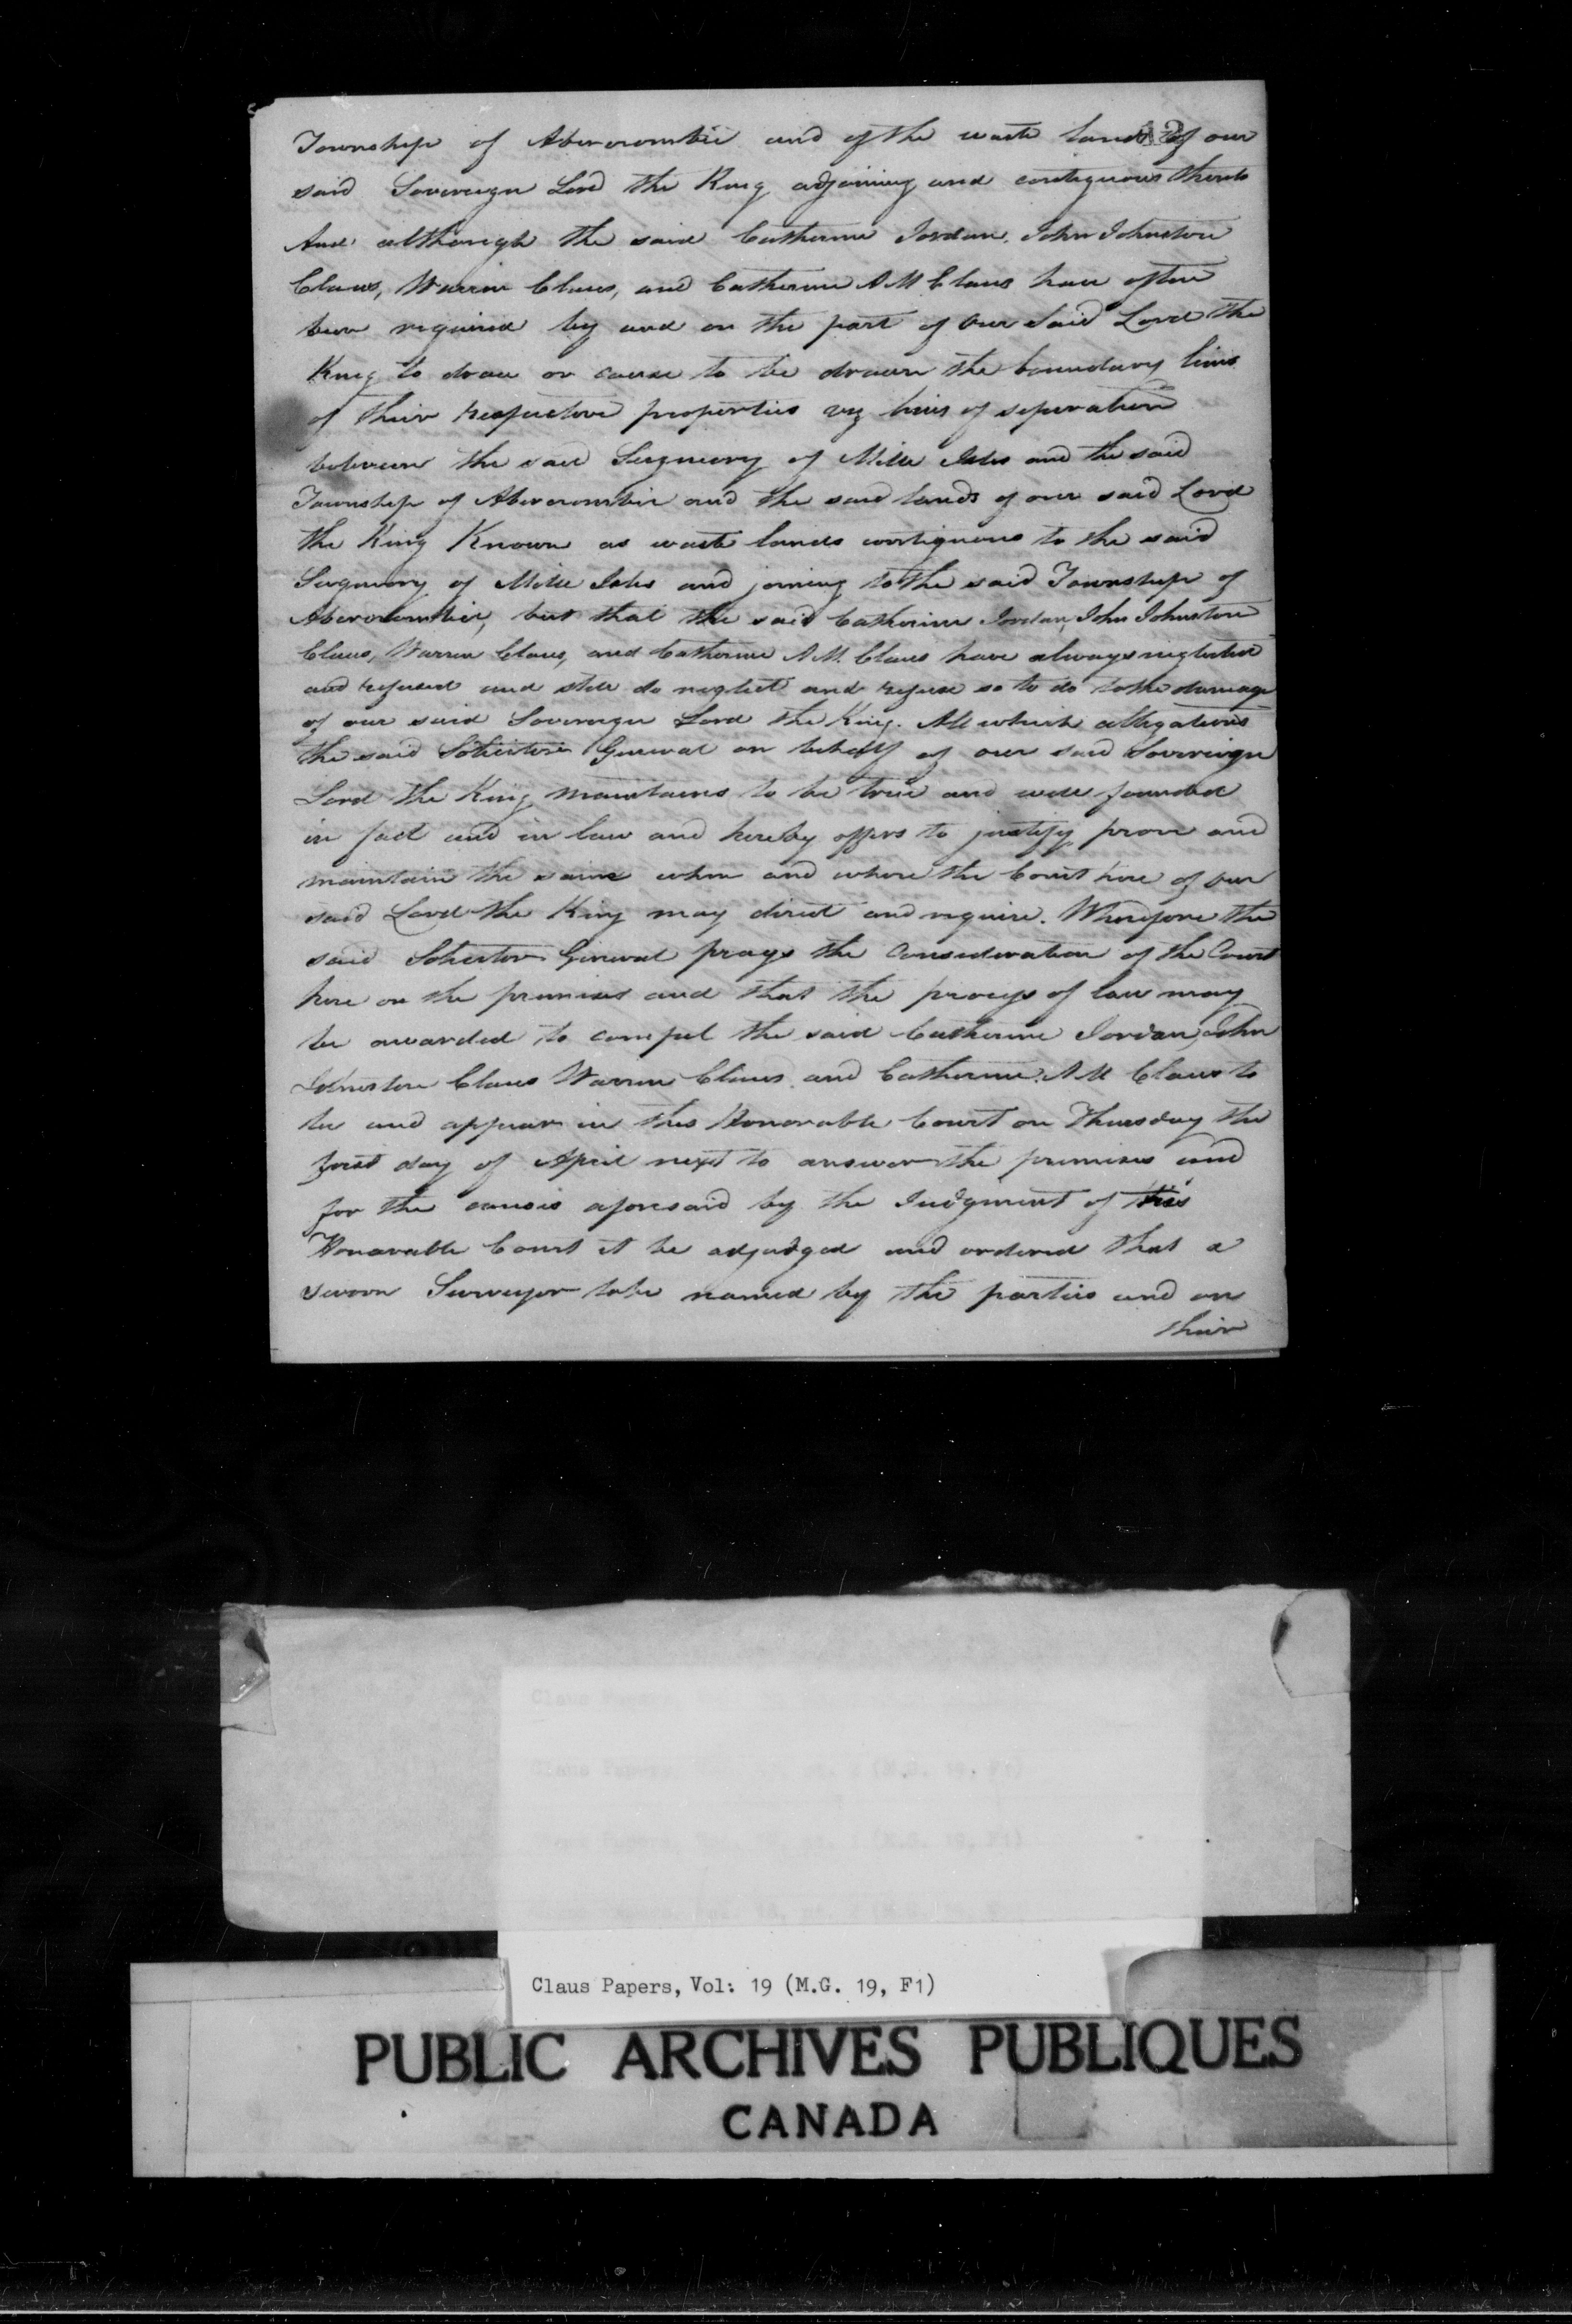 Township of Abercrombie and of the waste lands of our
said Sovereign Lord the King adjoining and contiguous thereto
And although the said Catherine Jordan, John Johnston
Claus, Warren Claus, and Catherine A M Claus have often
been required by and on the part of Our Said Lord the
King to draw or cause to be drawn the boundary lines
of their respective properties viz lines of seperation
between the said Seigneury of Mille Isles and the said
Township of Abercrombie and the said lands of our said Lord
the King Known as waste lands contiguous to the said
Seigneury of Mille Isles and joining to the said Township of
Abercrombie, but that the said Catherine Jordan, John Johnston
Claus, Warren Claus, and Catherine A M. Claus have always neglected
and refused and still do neglect and refuse so to do to the damage
of our said Sovereign Lord the King. All which allegations
the said Solicitor General on behalf of our said Sovereign
Lord the King maintains to be true and well founded
in fact and in law and hereby offers to justify prove and
maintain the same when and where the Court here of our
said Lord the King may direct and require. Wherefore the
said Solicitor General prays the Consideration of the Court
here on the premises and that the process of law may
be awarded to compel the said Catherine Jordan, John
Johnston Claus Warren Claus and Catherine A M Claus to
be and appear in this Honorable Court on Thursday the
first day of April next to answer the premises and
for the causes aforesaid by the Judgment of this
Honorable Court it be adjudged and ordered that a
sworn Surveyor to be named by the parties and on
their
Claus Papers, Vol: 19 (M.G. 19, F1)
PUBLIC ARCHIVES PUBLIQUES
CANADA